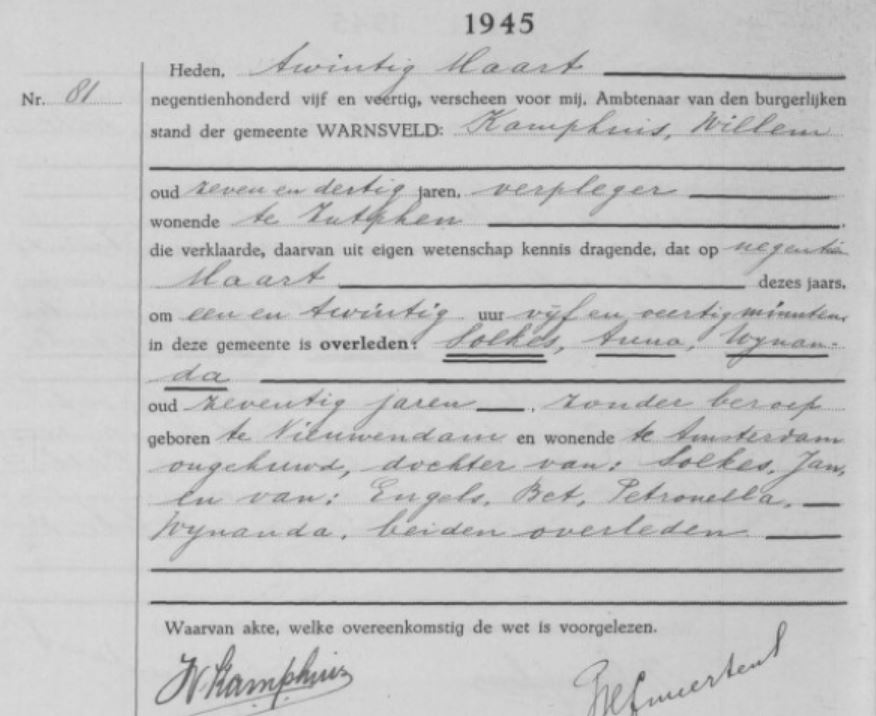 1945
Heden, twintig Maart
Nr. 81 negentienhonderd vijf en veertig, verscheen voor mij, Ambtenaar van den burgerlijken
stand der gemeente WARNSVELD: Kamphuis, Willem
oud zeven en dertig jaren, verpleger
wonende te Zutphen
die verklaarde, daarvan uit eigen wetenschap kennis dragende, dat op negentien
Maart dezes jaars,
om een en twintig uur vijf en veertig minuten,
in deze gemeente is overleden: Solkes, Anna, Wynan-
da
oud zeventig jaren, zonder beroep
geboren te Nieuwendam en wonende te Amsterdam
ongehuwd, dochter van: Solkes, Jan,
en van: Engels, Bet, Petronella,
Wynanda, beiden overleden
Waarvan akte, welke overeenkomstig de wet is voorgelezen.
W. Kamphuis